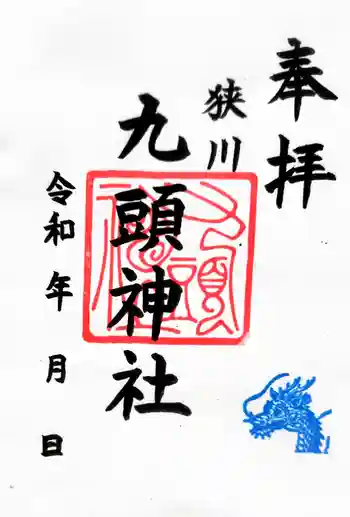 奉拝
狭川
九頭神社
令和 年 月 日